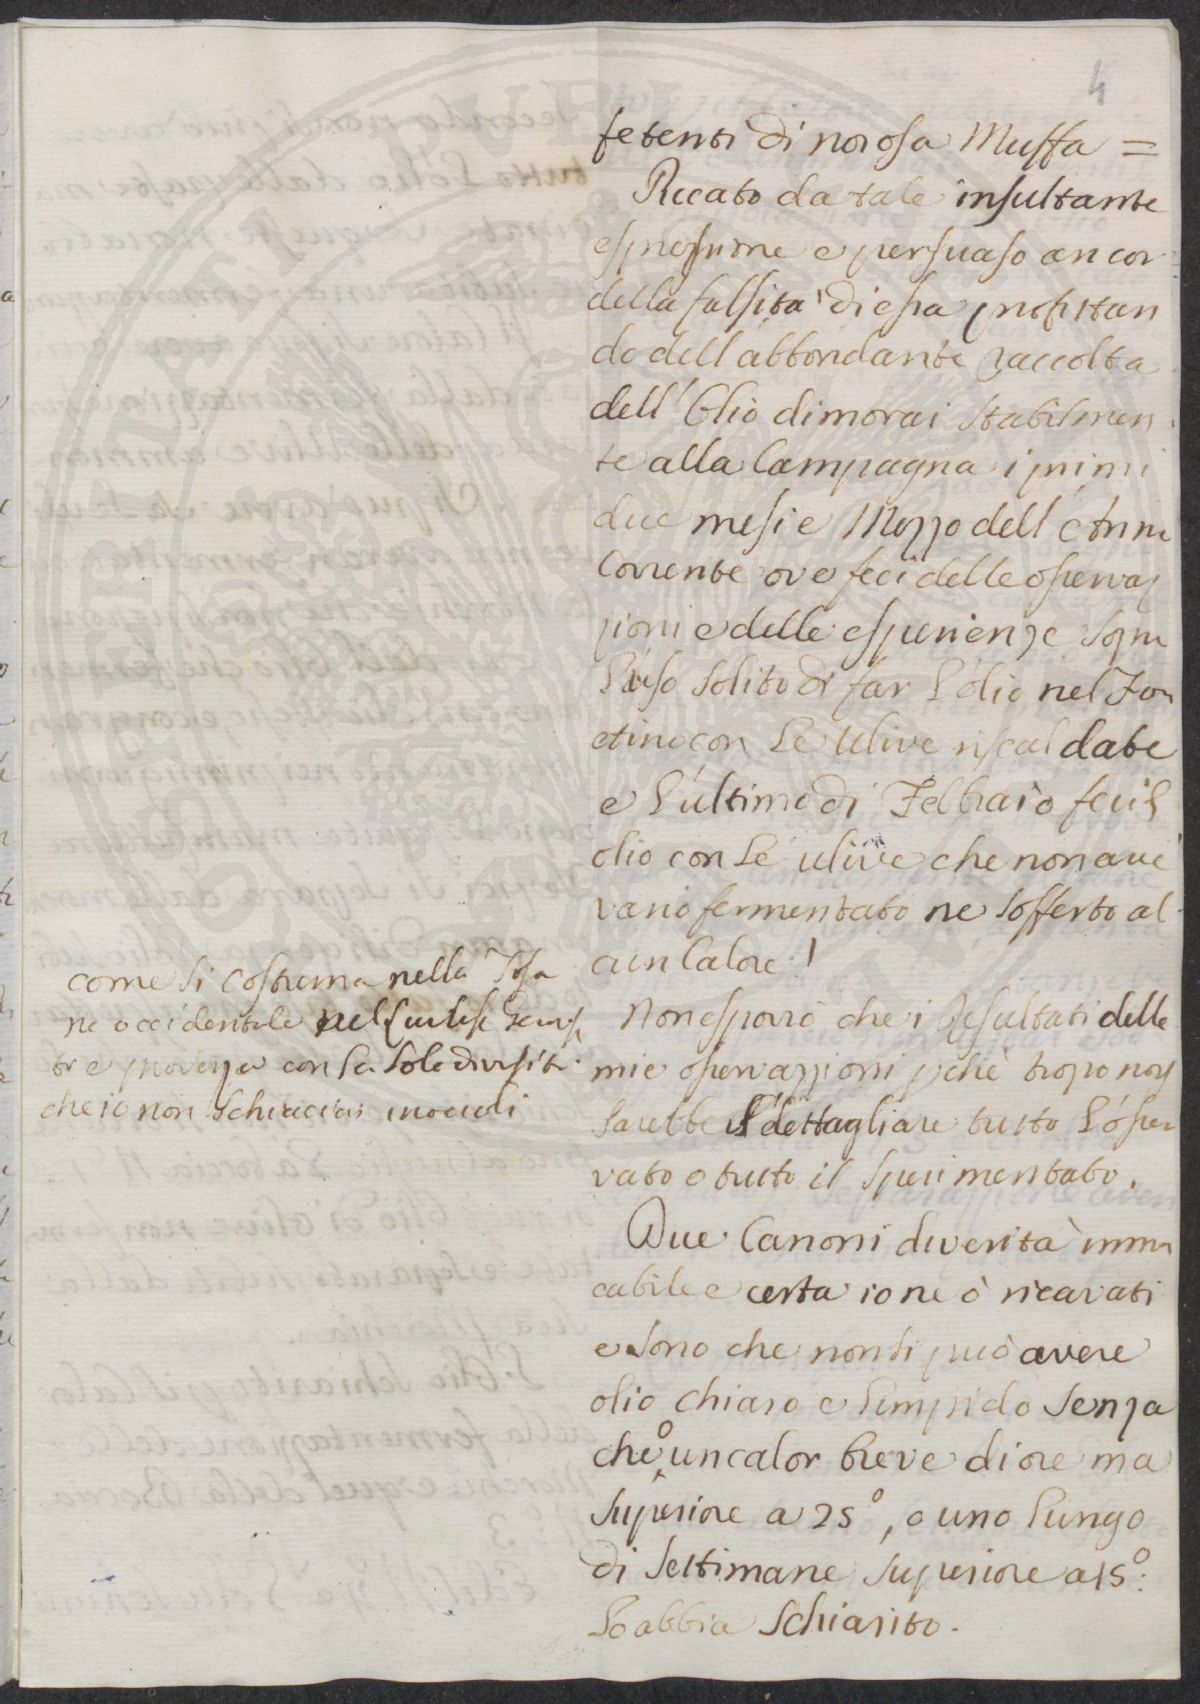 4
fetenti di noiosa Muffa =
Piccato da tale insultante
espressione e persuaso ancor
della falsità di essa profittan
do dell'abbondante raccolta
dell'Olio dimorai stabilmen
te alla Campagna i primi
due mesi e Mezzo dell'Anno
Corrente ove feci delle osservaz
zioni e delle esperienze sopra
l'uso solito di far l'olio nel
con le Ulive riscaldate
e l'ultimo di Febbraio feci l
olio con le ulive che non ave
vano fermentato ne sofferto al
cun Calore!
come si costuma nella Tosca
na occidentale nel
e provenza con la sola diversità
che io non schiacciai i noccioli
Non esporrò che i Resultati delle
mie osservazzioni pchè troppo noi
sarebbe il dettagliare tutto l'osser
vato o tutto il sperimentato.
Due Canoni di verità immu
tabile e certa io ne ò ricavati
e sono che non si può avere
olio chiaro e limpido senza
che o un calor breve di ore ma
superiore a 25°, o uno lungo
di settimane superiore a 15°:
lo abbia schiarito.